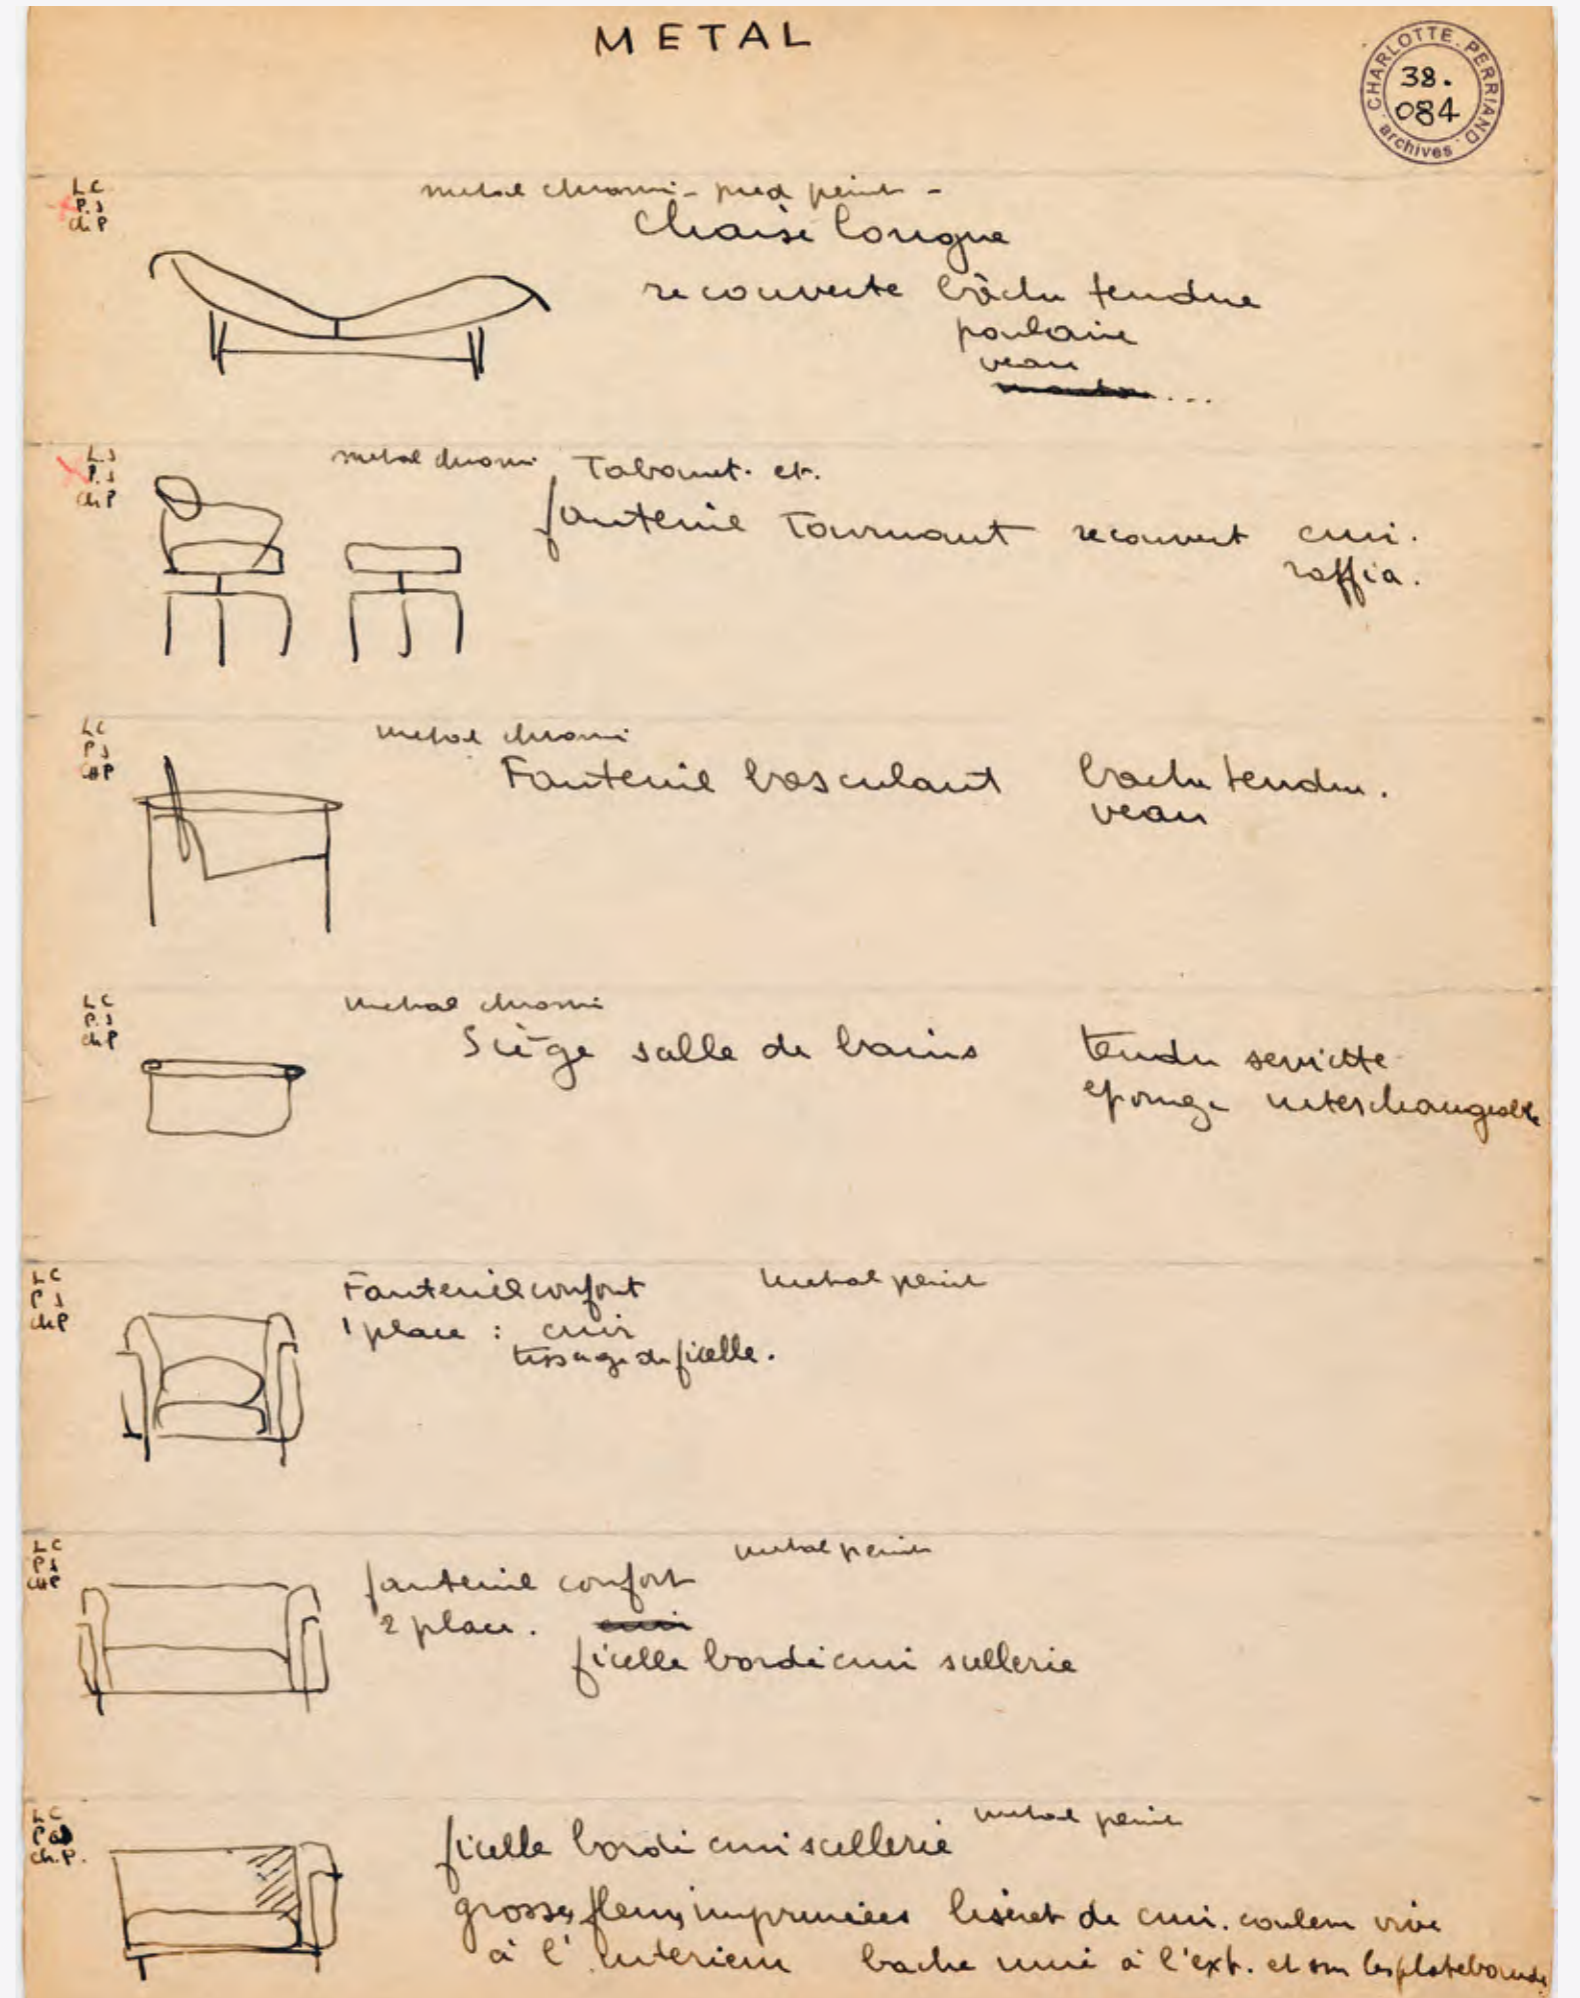 METAL
CHARLOTTE PERRIAND archives
38.
084
LC
P.J
ch P
metal chromé - pied peint -
Chaise longue
recouverte bâche tendue
poulain
veau
mouton...
L.J
P.J
ch P
metal chromé Tabouret. et.
fauteuil Tournant recouvert cuir.
raffia.
LC
PJ
chP
metal chromé
Fauteuil basculant bache tendue.
veau
LC
P.J
chP
metal chromé
Siège salle de bains tendu serviette
eponge interchangeable
LC
PJ
chP
Fauteuil confort metal peint
1 place : cuir
tissage de ficelle.
LC
PJ
chP
metal peint
fauteuil confort
2 place. cuir
ficelle bordé cuir sellerie
LC
ch.P.
metal peint
ficelle bordé cuir scellerie
grosses fleurs imprimées liseret de cuir. couleur vive
à l'interieur bache unie à l'ext. et sur les platebandes